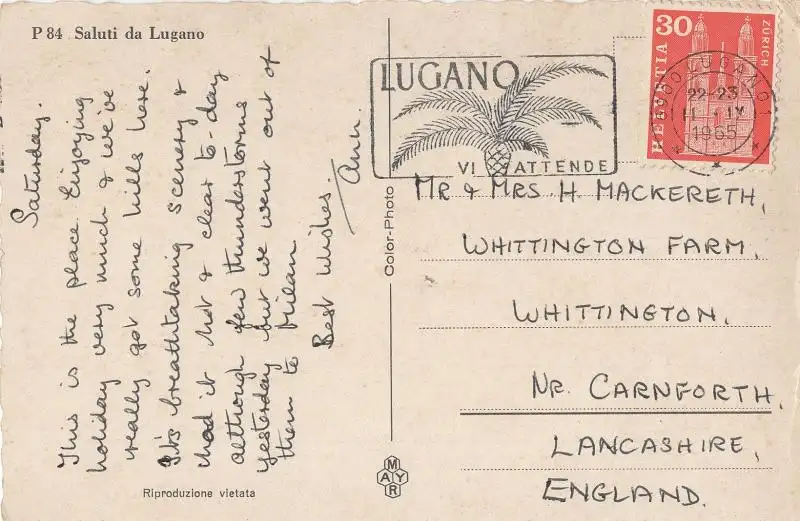 P 84 Saluti da Lugano
Saturday.
This is the place. Enjoying
holiday very much & we've
really got some hills here.
It's breathtaking scenery &
had it hot & clear to-day
although few thunderstorms
yesterday but we went out of
them to Milan
Best Wishes.
Ann.
Riproduzione vietata
Color-Photo
MAYR
LUGANO
VI ATTENDE
6900 LUGANO 1
22-23
11.IX
1965
HELVETIA
30
ZÜRICH
MR & MRS H MACKERETH,
WHITTINGTON FARM,
WHITTINGTON.
NR. CARNFORTH,
LANCASHIRE,
ENGLAND.